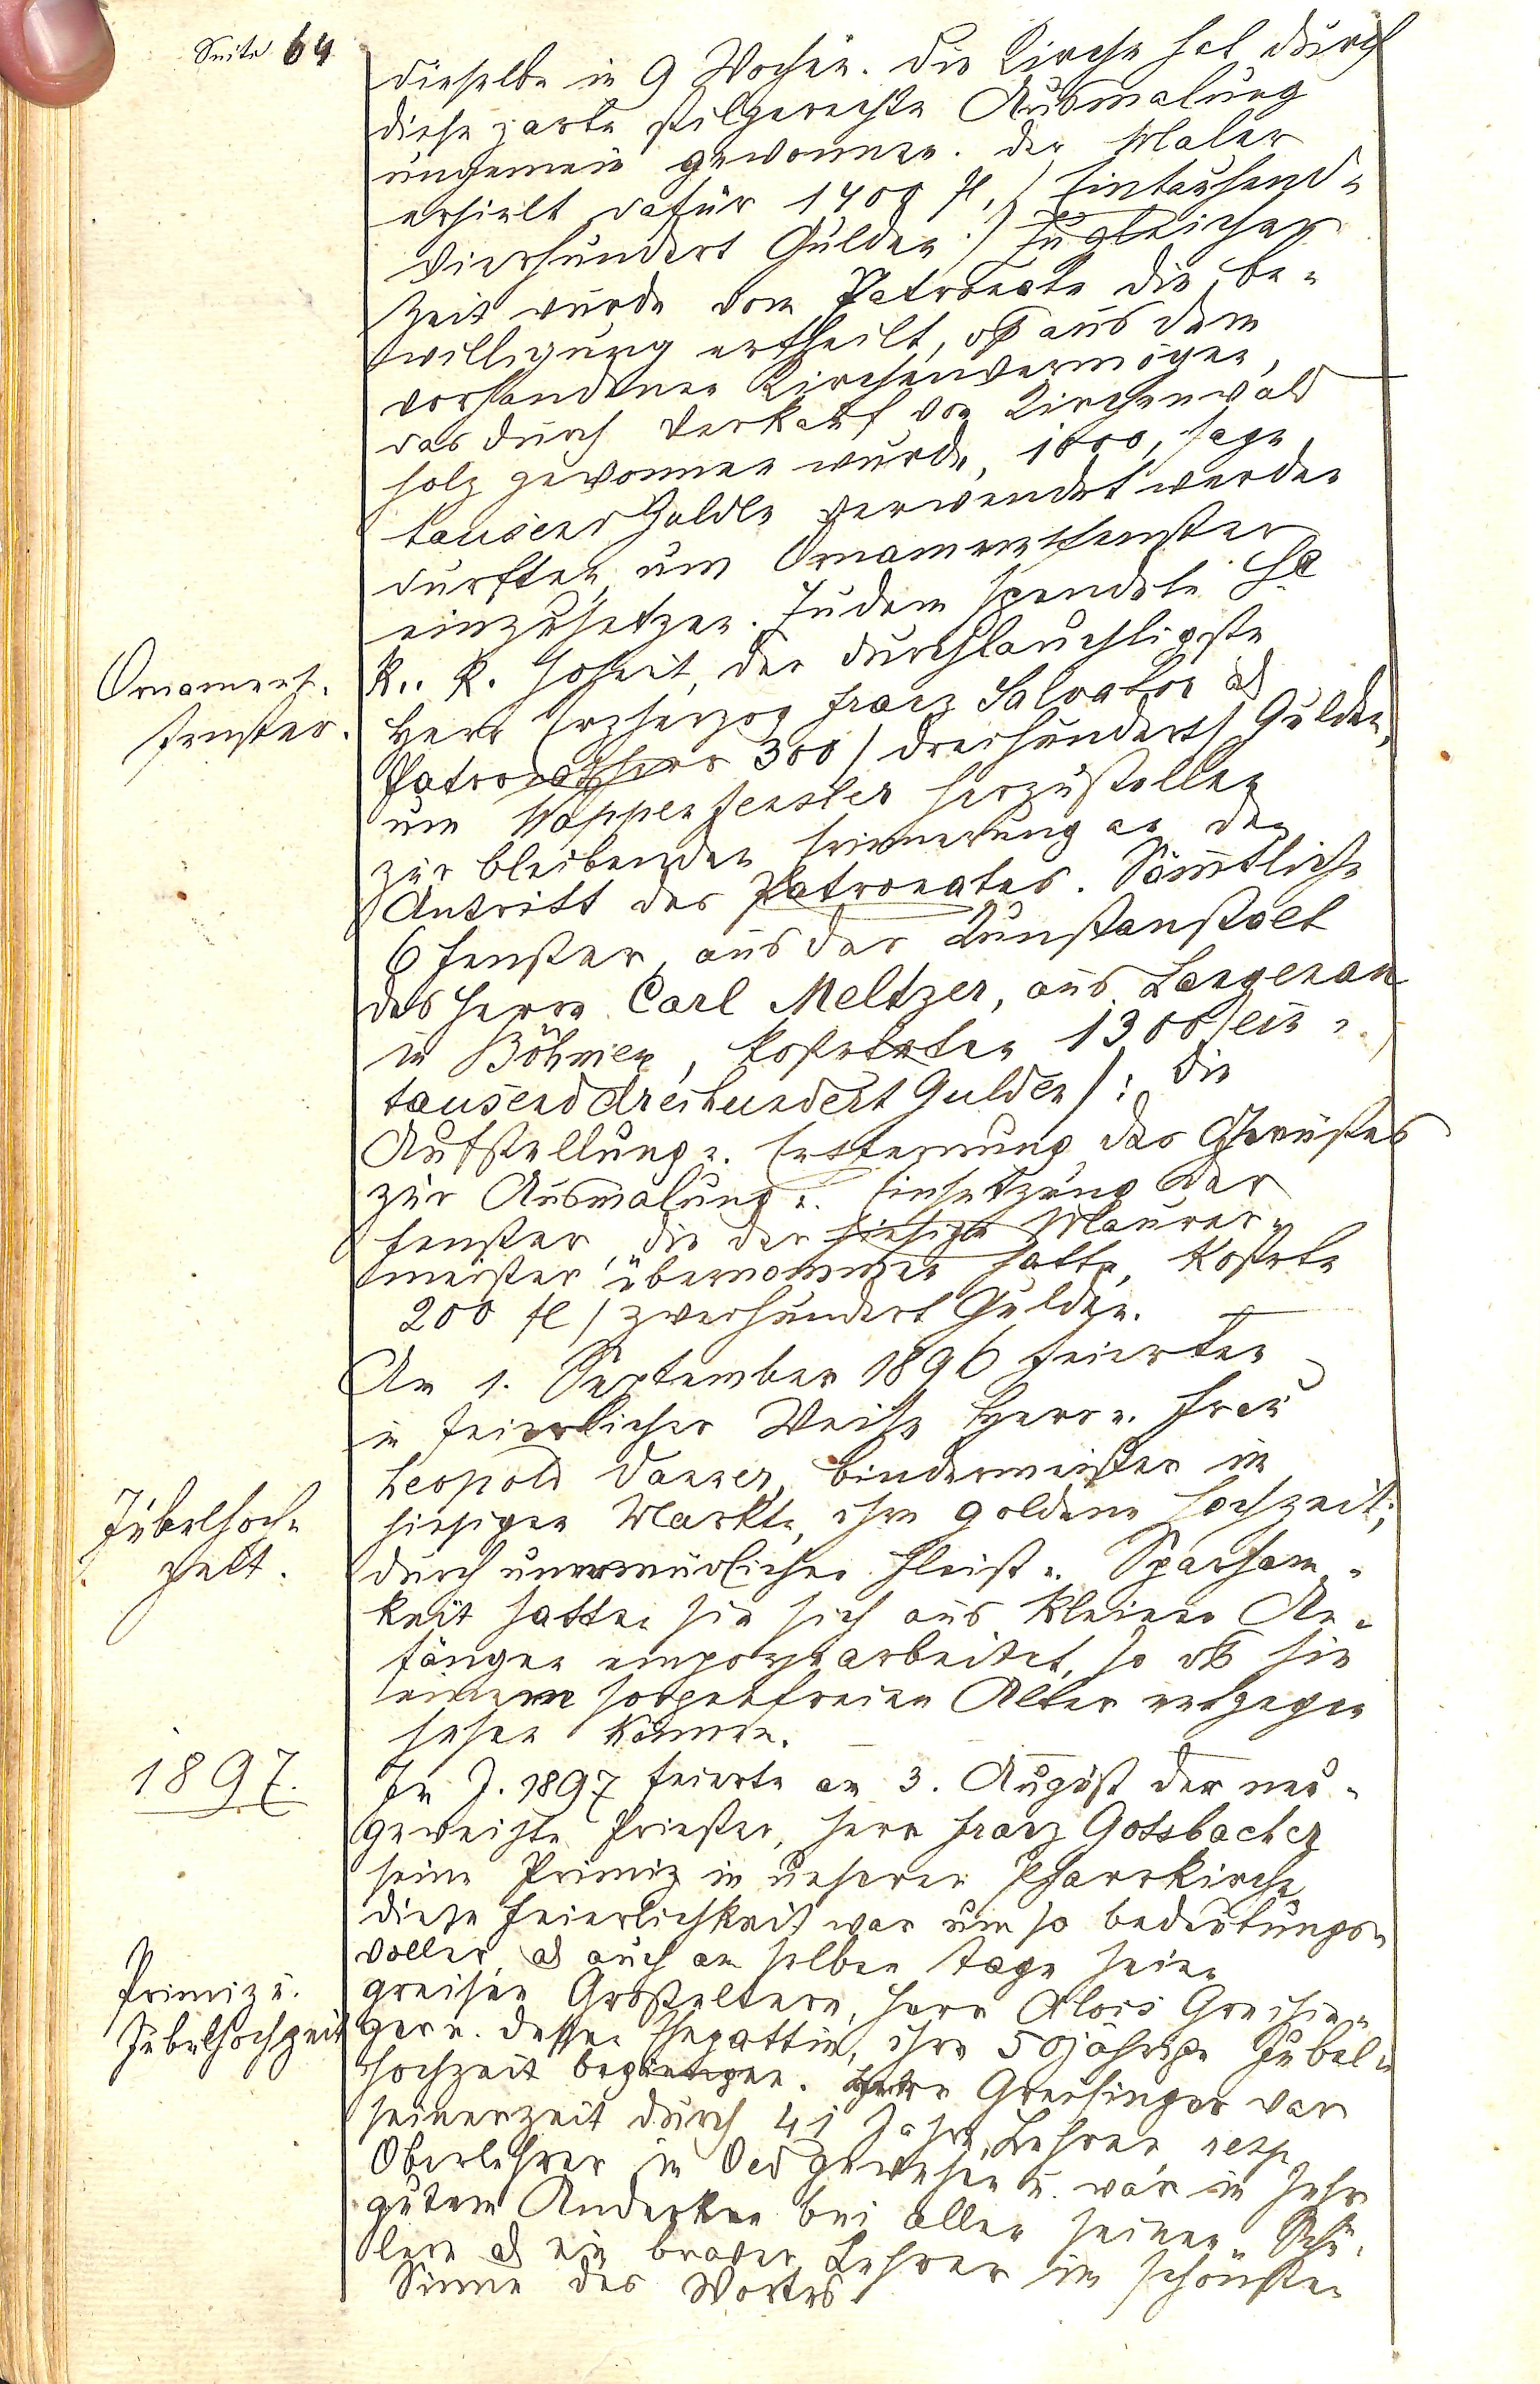 Seite 64
dieselbe in 9 Wochen. Die Kirche hat durch
diese zarte stilgerechte Ausmalung
ungemein gewonnen. Der Maler
erhielt dafür 1400 fl, / Eintausend-
vierhundert Gulden./ Zu gleicher
Zeit wurde vom Patronate die Be-
willigung ertheilt, dß aus dem
vorhandenen Kirchenvermögen,
das durch Verkauf von Kirchenwald
holz gewonnen wurde, 1000, sage
tausend Guldn verwendet werden
durften um Ornamentfenster
einzusetzen. Zudem spendete Se
K. K. Hoheit, der durchlauchtigste
Herr Erzherzog Franz Salvator als
Patronatsherr 300 / dreihundert / Gulden,
um Wappenfenster herzustellen
zur bleibenden Erinnerung an den
Antritt des Patronates. Sämtliche
6 Fenster, aus der Kunstanstalt
des Herrn Carl Meltzer, aus Langenau
in Böhmen, kosteten 1300 / ein-
tausenddreihundert Gulden / : die
Aufstellung u. Entfernung des Gerüstes
zur Ausmalung u. Einsetzung der
Fenster, die der hiesige Maurer-
meister übernommen hatte, kostete
200 fl / zweihundert Gulden.
Ornament-
fenster.
Am 1. September 1896 feierten
in feierlicher Weise Herr u. Frau
Leopold Danzer, Bindermeister im
hiesigen Markte, ihre goldene Hochzeit;
durch unermüdlichen Fleiß u. Sparsam-
keit hatten sie sich aus kleinen An-
fängen emporgearbeitet, so dß sie
einem sorgenfreien Alter entgegen
sehen können.
Jubelhoch-
zeit.
1897.
Im J. 1897 feierte am 3. August der neu-
geweihte Priester, Herr Franz Gotsbacher
seine Primiz in unserer Pfarrkirche
diese Feierlichkeit war um so bedeutungs-
voller, als auch am selben Tage seine
greisen Großeltern, Herr Alois Greisin-
ger u. dessen Ehegattin, ihre 50jährige Jubel-
hochzeit begiengen. Herr Greisinger war
seinerzeit durch 41 Jahre Lehrer, resp.
Oberlehrer in Oed gewesen u. war in sehr
gutem Andenken bei allen seinen Schü-
lern als ein braver Lehrer im schönsten
Sinne des Wortes
Primiz u.
Jubelhochzeit